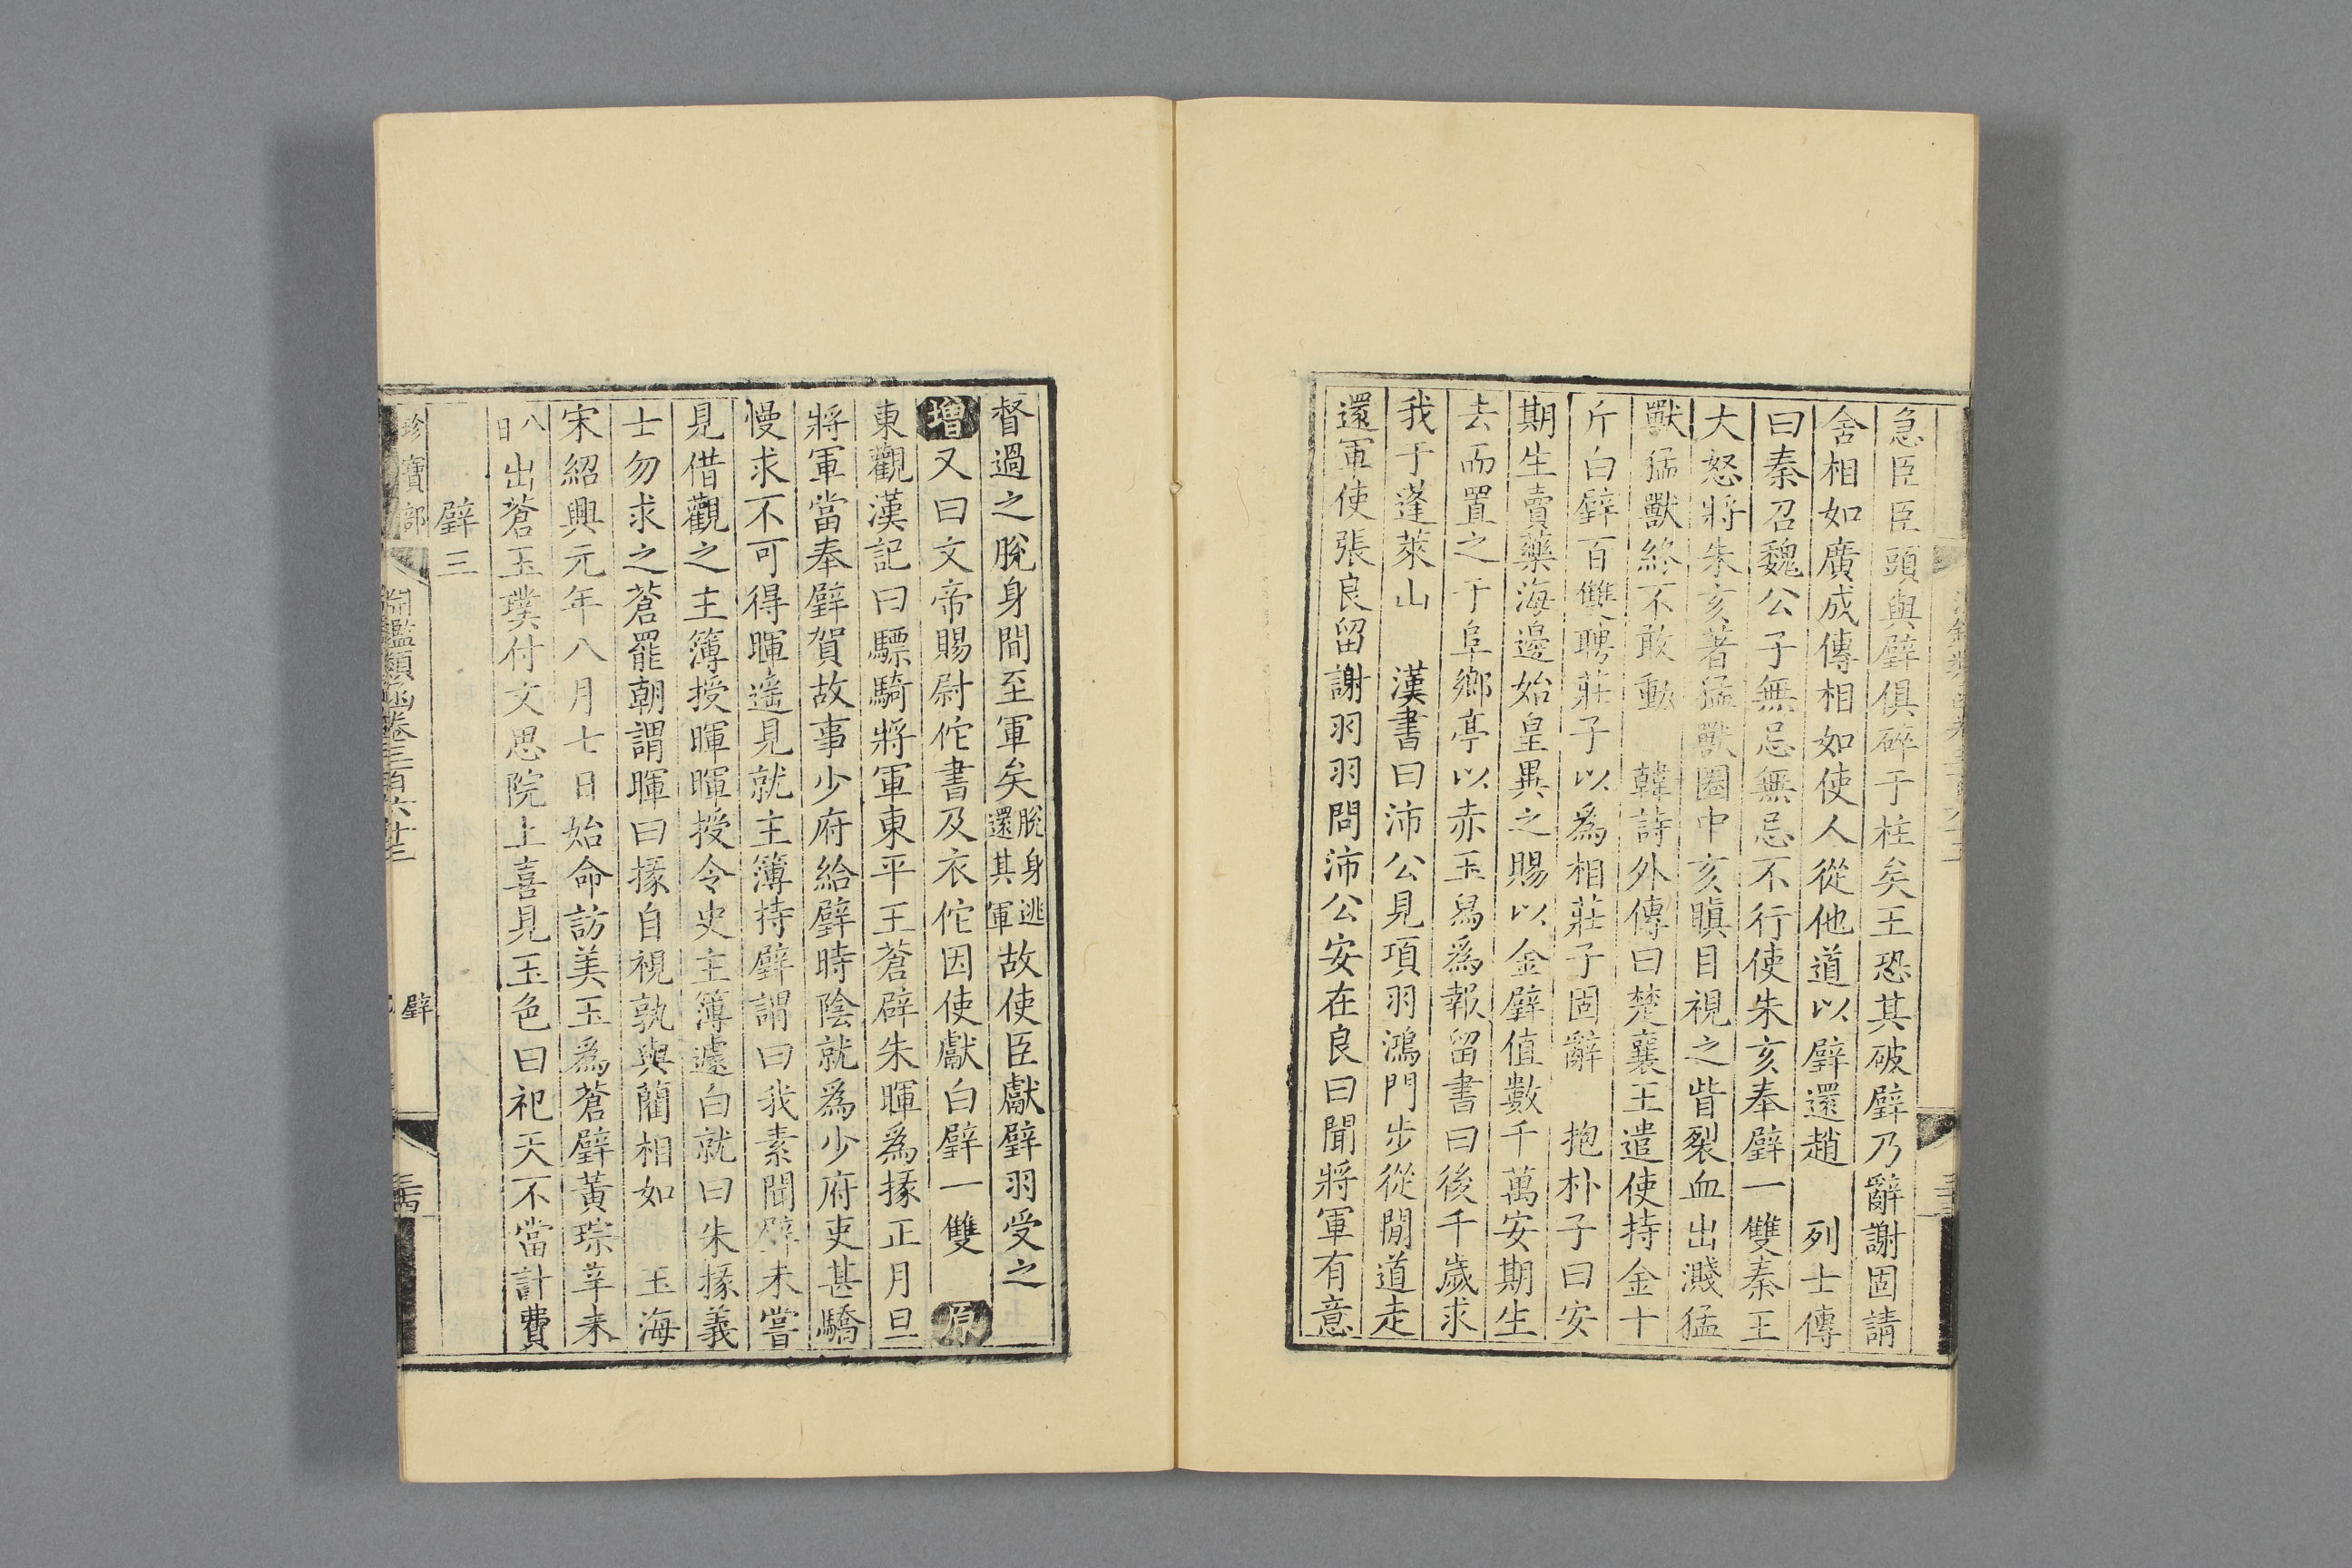 急臣臣頭與璧俱碎于柱矣王恐其破璧乃辭謝固請
舍相如廣成傳相如使人從他道以璧還趙　列士傳
曰秦召魏公子無忌無忌不行使朱亥奉璧一雙秦王
大怒將朱亥著猛獸圈中亥瞋目視之眥裂血出濺猛
獸猛獸終不敢動　韓詩外傳曰楚襄王遣使持金十
斤白璧百雙聘莊子以為相莊子固辭　抱朴子曰安
期生賣藥海邊始皇異之賜以金璧值數千萬安期生
去而置之于阜鄉亭以赤玉舄為報留書曰後千歲求
我于蓬萊山　漢書曰沛公見項羽鴻門步從間道走
還軍使張良留謝羽羽問沛公安在良曰聞將軍有意
督過之脫身間至軍矣脫身逃還其軍故使臣獻璧羽受之
增又曰文帝賜尉佗書及衣佗因使獻白璧一雙　原
東觀漢記曰驃騎將軍東平王蒼辟朱暉為掾正月旦
將軍當奉璧賀故事少府給璧時陰就為少府吏甚驕
慢求不可得暉遙見就主簿持璧謂曰我素聞璧未嘗
見借觀之主簿授暉暉授令史主簿遽白就曰朱掾義
士勿求之蒼罷朝謂暉曰掾自視孰與藺相如　玉海
宋紹興元年八月七日始命訪美玉為蒼璧黃琮莘來
八日出蒼玉璞付文思院上喜見玉色曰祀天不當計費
璧三
珍寶部
淵鑑類函卷三百六十三
璧